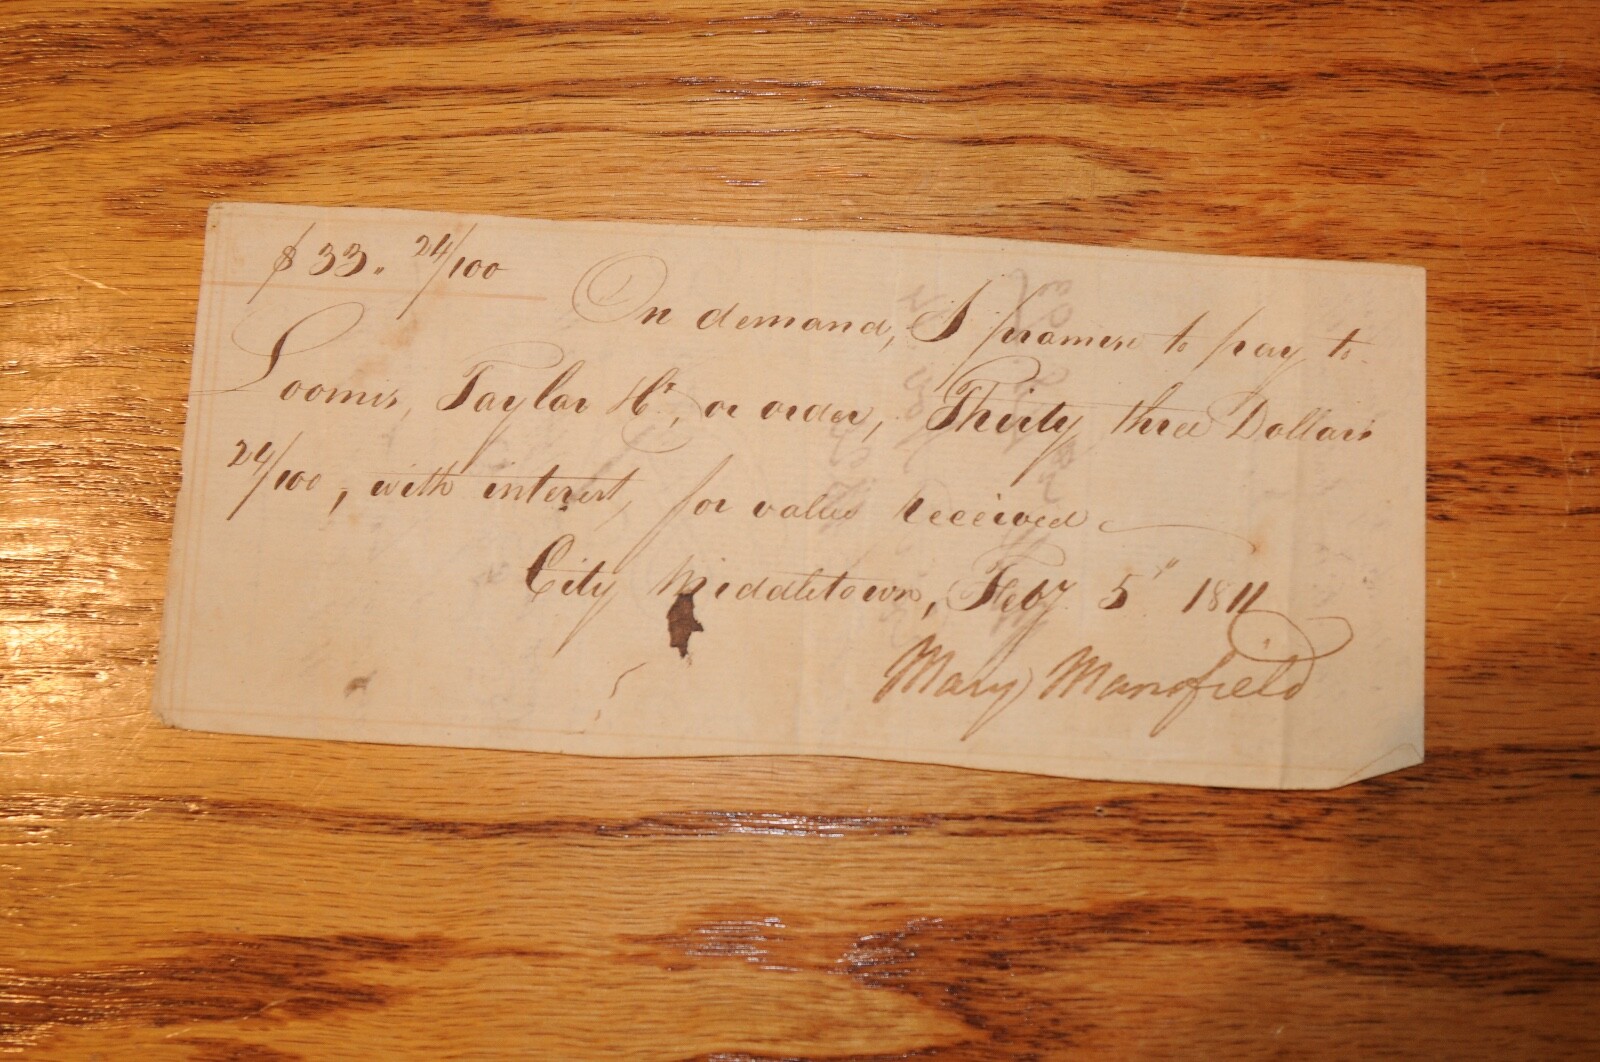 $33. 24/100
On demand, I promise to pay to
Loomis, Taylor & Co, or order, Thirty three Dollars
24/100, with interest, for value received
City Middletown, Feby 5" 1811
Mary Mansfield